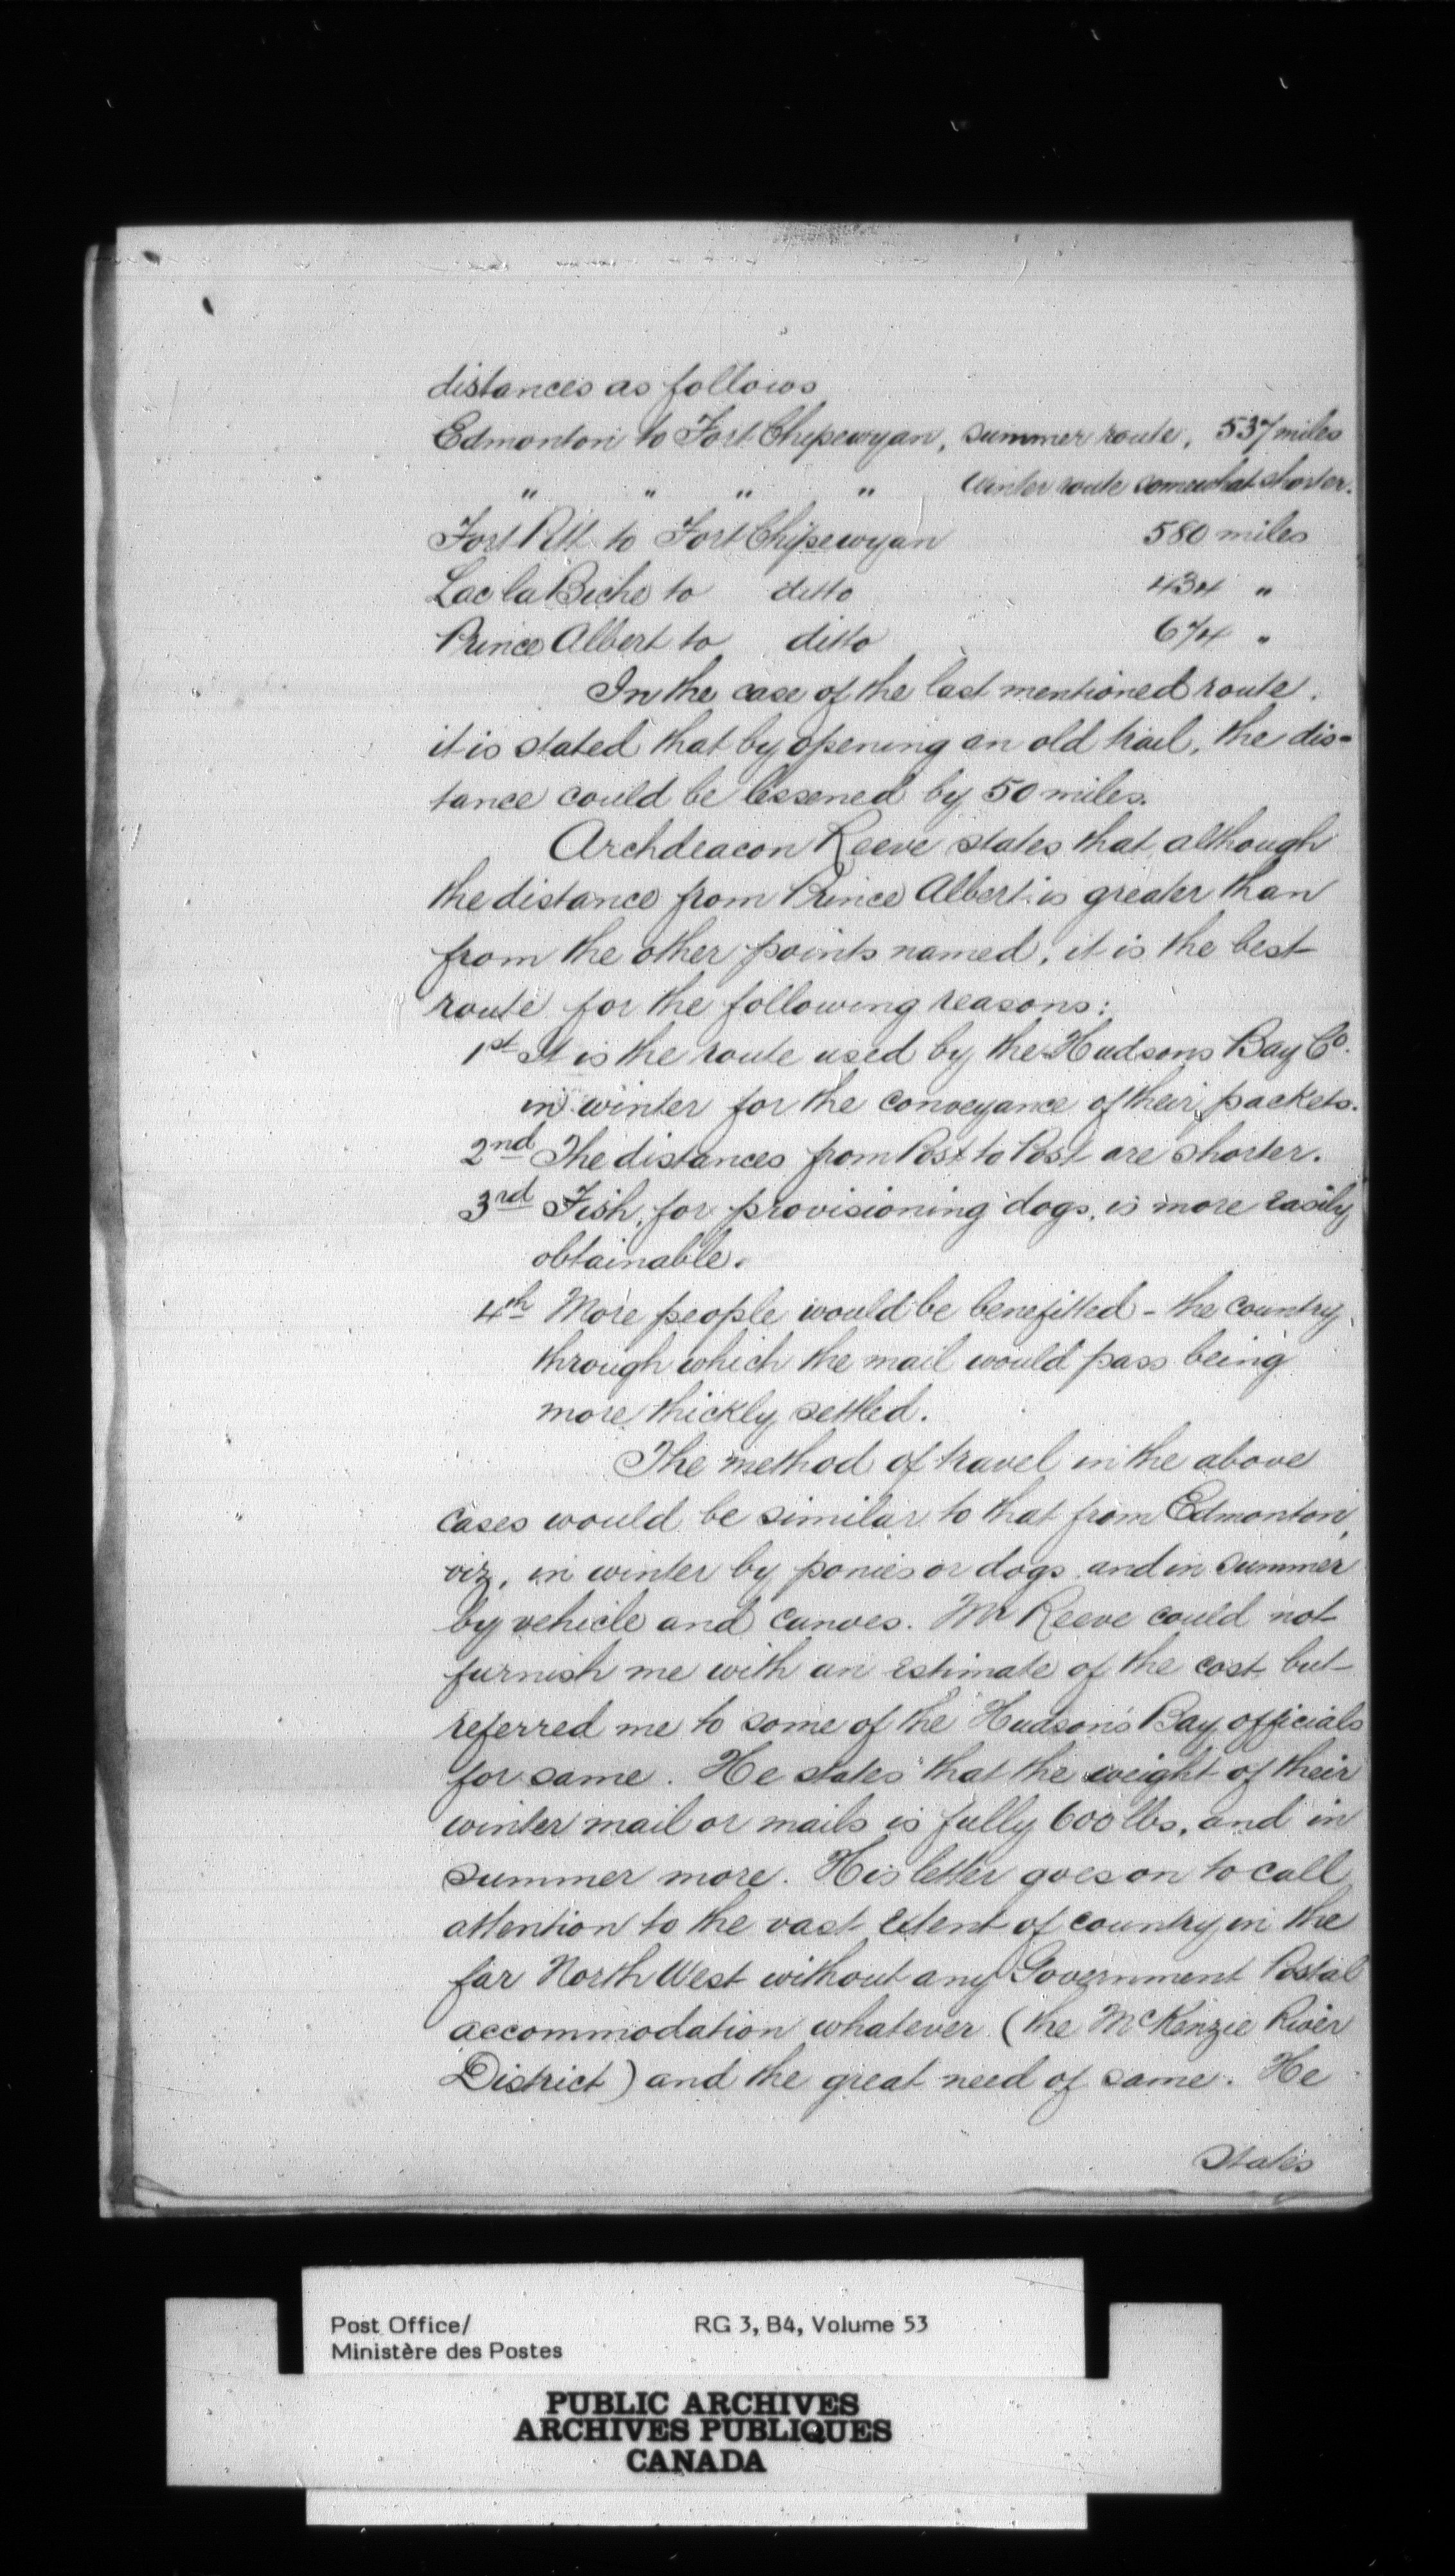 distances as follows
Edmonton to Fort Chipewyan, summer route, 537 miles
" " " " Winter route somewhat shorter.
Fort Pitt to Fort Chipewyan 580 miles
Lac la Biche to ditto 434 "
Prince Albert to ditto 674 "
In the case of the last mentioned route,
it is stated that by opening an old trail, the dis-
tance could be lessened by 50 miles.
Archdeacon Reeve states that although
the distance from Prince Albert is greater than
from the other points named, it is the best
route for the following reasons:
1st It is the route used by the Hudsons Bay Co.
in winter for the conveyance of their packets.
2nd The distances from Post to Post are shorter.
3rd Fish, for provisioning dogs, is more easily
obtainable.
4th More people would be benefitted - the country
through which the mail would pass being
more thickly settled.
The method of travel in the above
cases would be similar to that from Edmonton,
viz, in winter by ponies or dogs and in summer
by vehicle and canoes. Mr Reeve could not
furnish me with an estimate of the cost but
referred me to some of the Hudson's Bay officials
for same. He states that the weight of their
winter mail or mails is fully 600 lbs, and in
summer more. His letter goes on to call
attention to the vast extent of country in the
far North West without any Government Postal
accommodation whatever (the McKenzie River
District) and the great need of same. He
states
Post Office/ RG 3, B4, Volume 53
Ministère des Postes
PUBLIC ARCHIVES
ARCHIVES PUBLIQUES
CANADA